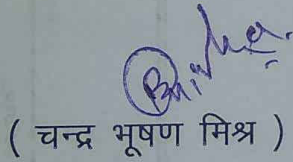 ( चन्द्र भूषण मिश्र )